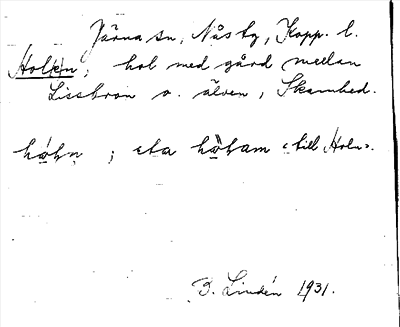 Järna sn, Nås tg, Kopp. l.
Holen, hol med gård mellan
Lissbron o. älven, Skamhed.
hɷ̀ln ; sta hɷ̀lam "till Holn".
B. Lindén 1931.